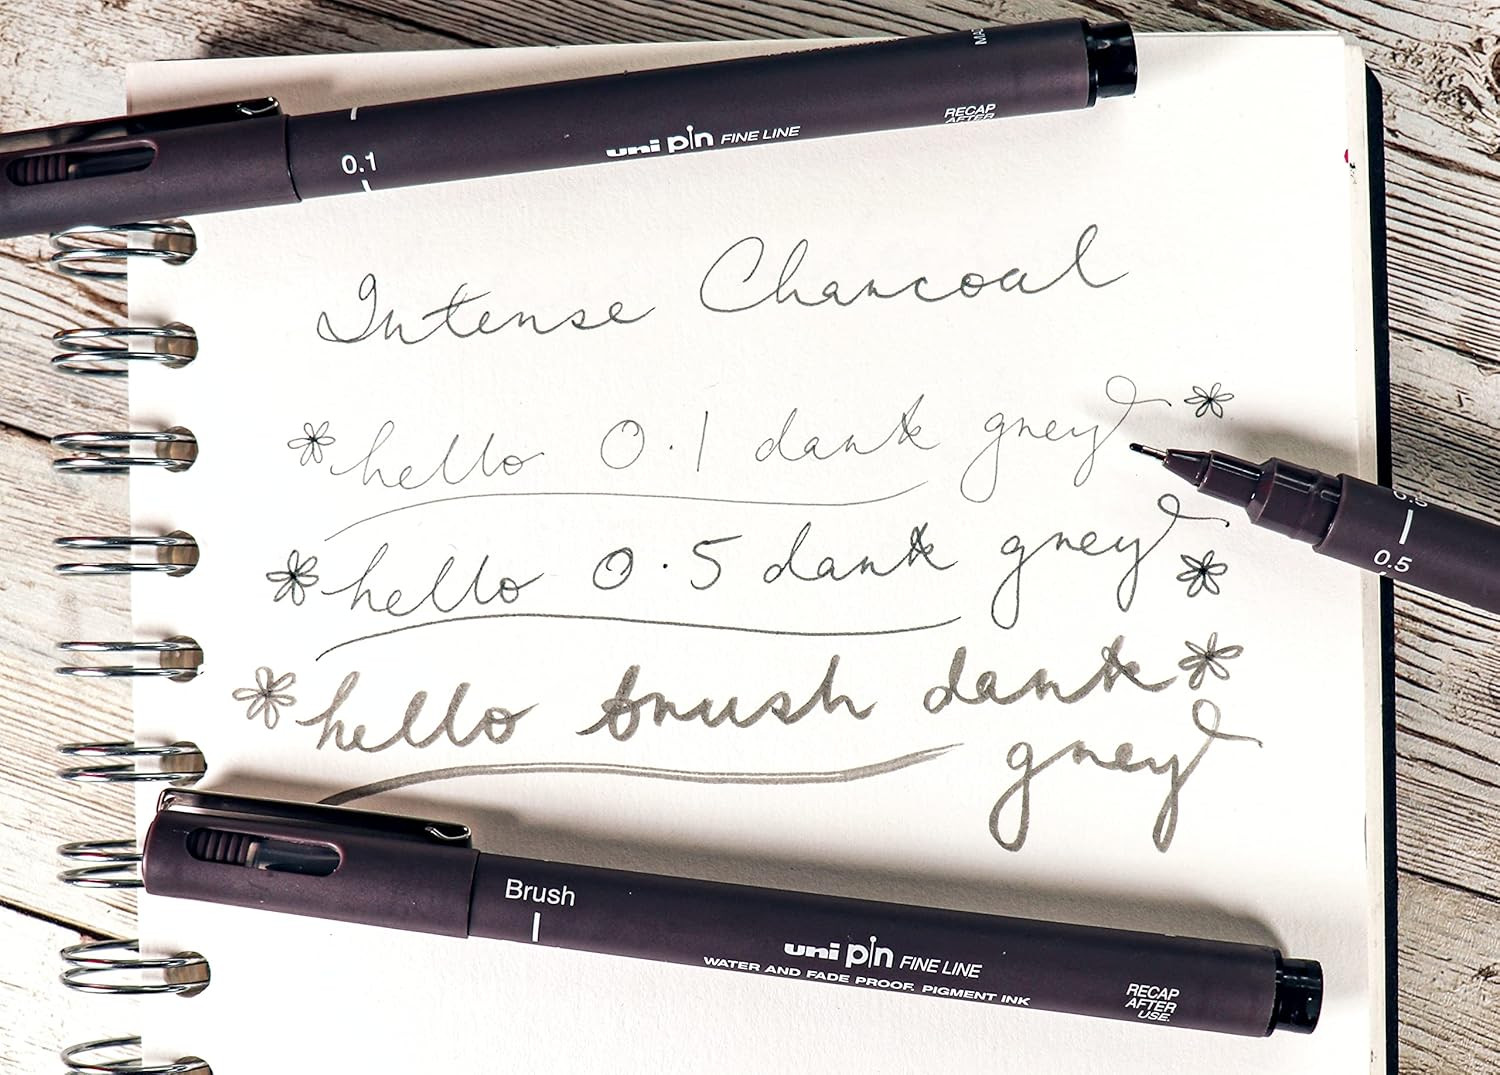 MAD
RECAP
AFTER
uni pin FINE LINE
0.1
Intense Charcoal
hello 0.1 dark grey
0.5
hello 0.5 dark grey
hello brush dark
grey
Brush
uni pin FINE LINE
WATER AND FADE PROOF. PIGMENT INK
RECAP
AFTER
USE.